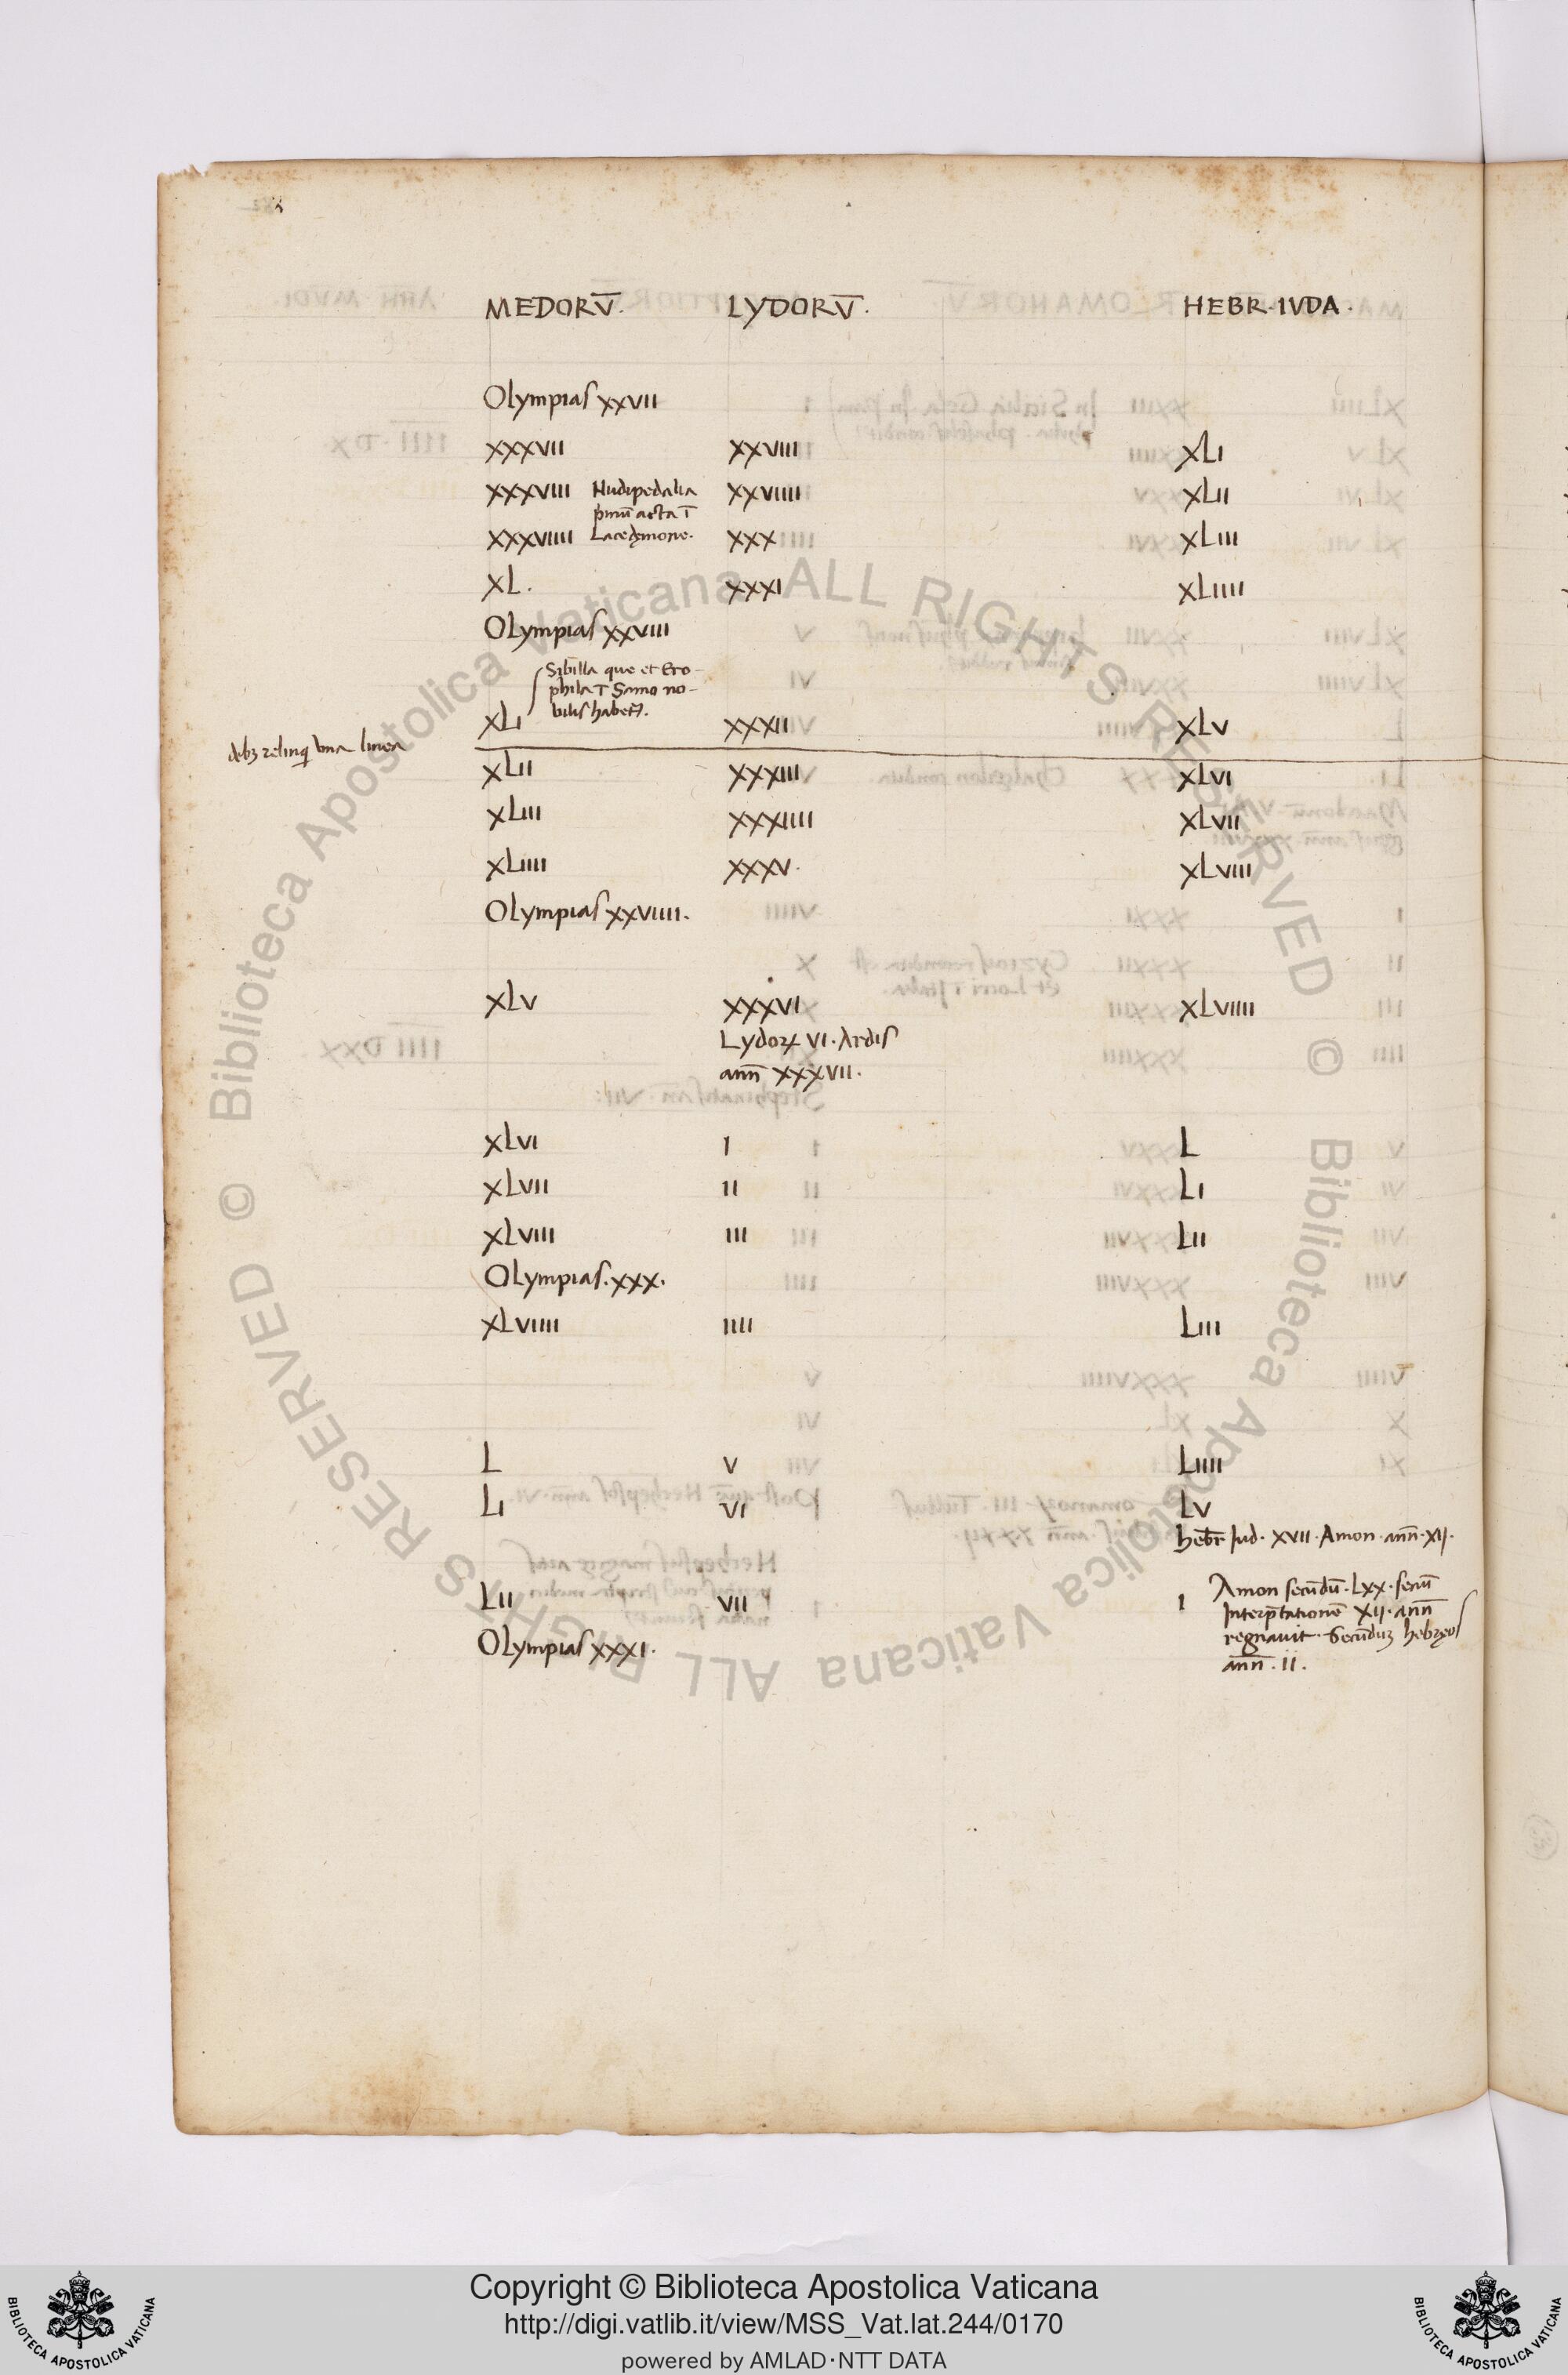 MEDORV̄. LYDORV̄. HEBR·IVDA·
Olympias XXVII
XXXVII XXVIII XLI
XXXVIII Nudipedalia XXVIIII XLII
pmū acta ī
XXXVIIII Lacedęmone. XXX XLIII
XL. XXXI XLIIII
Olympias XXVIII
Sibilla que et Ero-
phila ī Samo no-
bilis habet̃.
XLI XXXII XLV
una linea
XLII XXXIII XLVI
XLIII XXXIIII XLVII
XLIIII XXXV. XLVIII
Olympias XXVIIII.
XLV XXXVI XLVIIII
Lydoꝝ VI. Ardis
ann̄ XXXVII.
XLVI I L
XLVII II LI
XLVIII III LII
Olympias. XXX.
XLVIIII IIII LIII
L V LIIII
LI VI LV
hebr̄ Iud. XVII. Amon. ann̄. XII.
LII VII I Amon secūdū. LXX. secū
Interp̄tationē XII. ann̄
Olympias XXXI. regnauit. Secūduʒ hebręos
ann̄. II.
© Biblioteca Apostolica Vaticana ALL RIGHTS RESERVED © Biblioteca Apostolica Vaticana ALL RIGHTS RESERVED
BIBLIOTECA APOSTOLICA VATICANA
Copyright © Biblioteca Apostolica Vaticana
http://digi.vatlib.it/view/MSS_Vat.lat.244/0170
powered by AMLAD·NTT DATA
BIBLIOTECA APOSTOLICA VATICANA